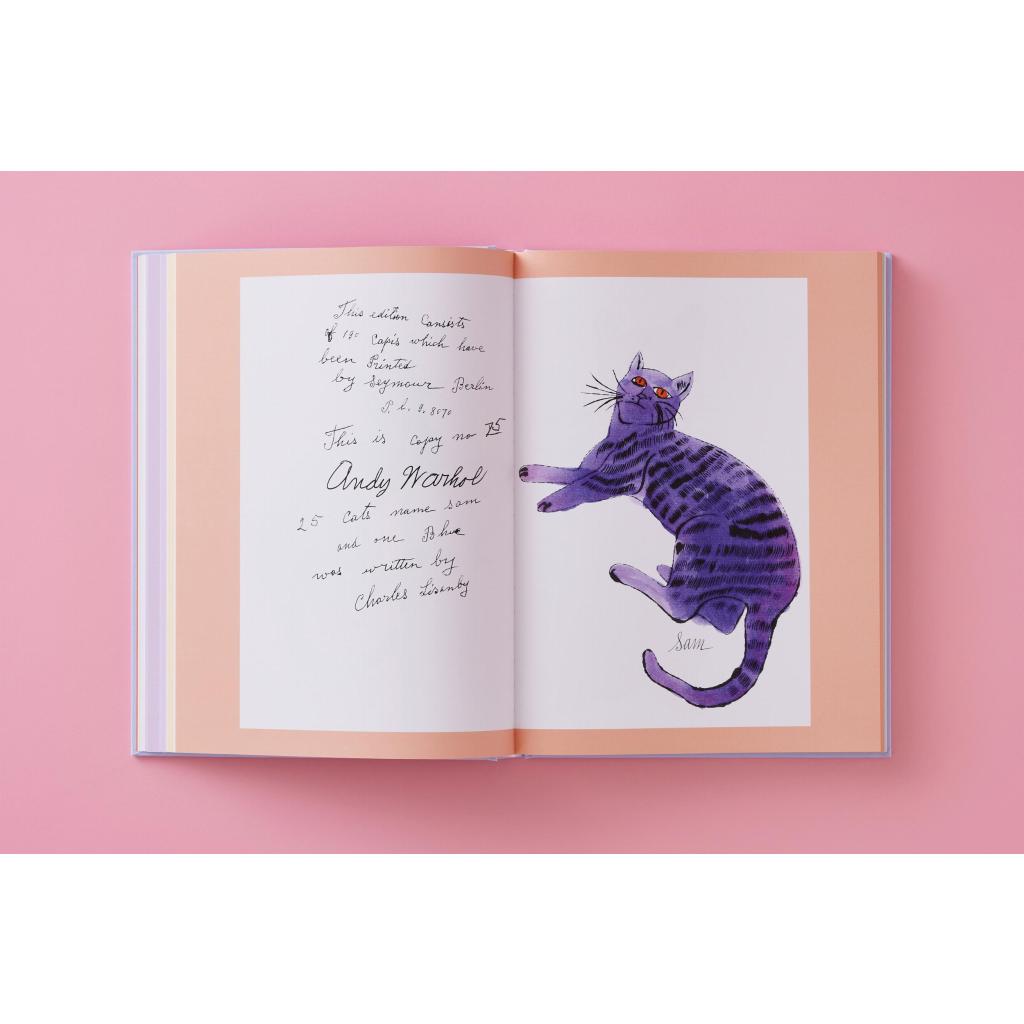 This edition Consists
of 190 Capis which have
been Printed
by Seymour Berlin
P. L. 9. 8070
This is copay no 75
Andy Warhol
25 Cats name sam
and one Blue
was written by
Charles Lisanby
Sam